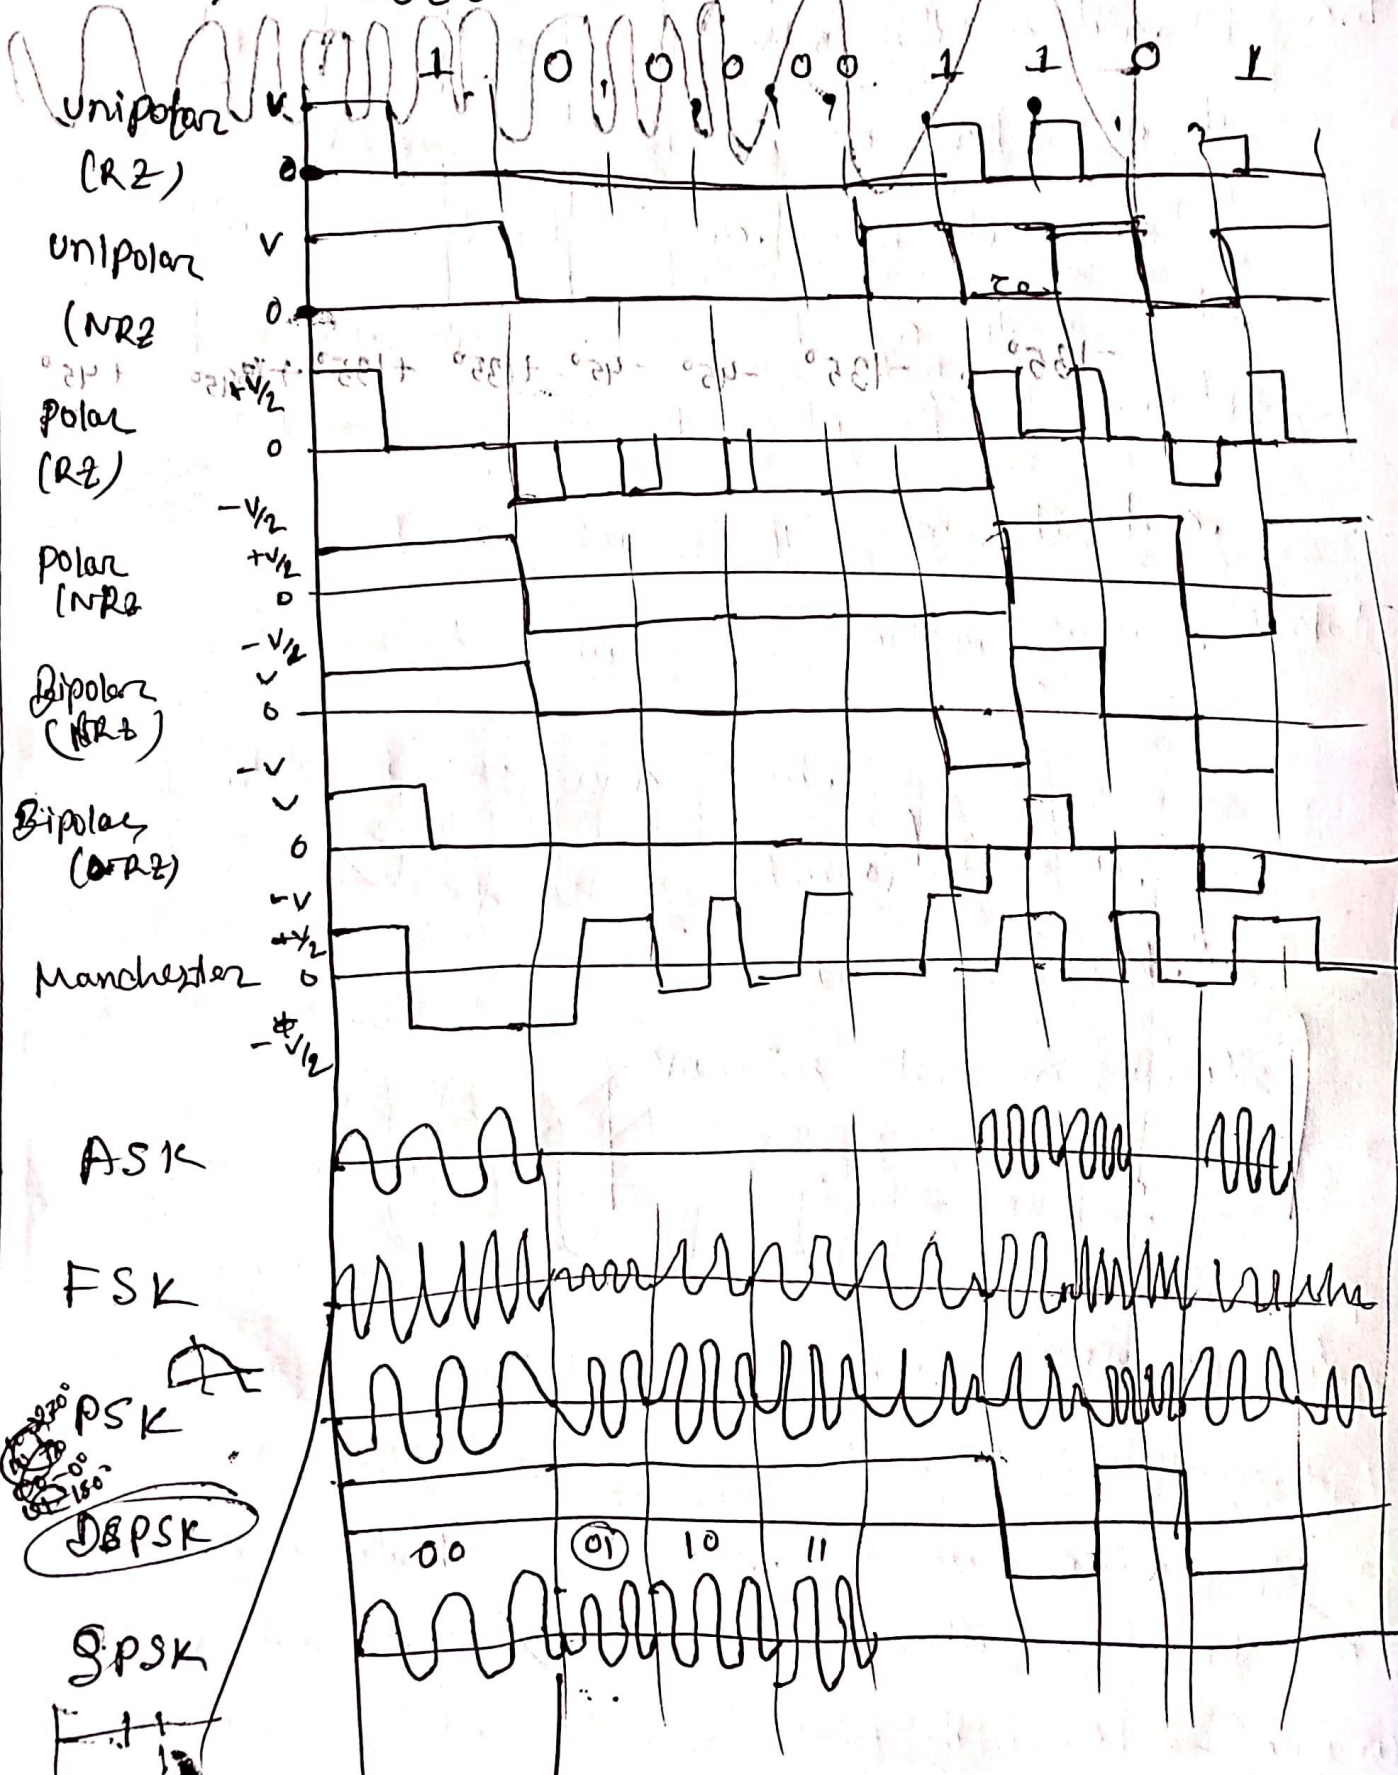 1 0 0 0 0 0 1 1 0 1
Unipolar V
(RZ) 0
Unipolar V
(NRZ 0
Polar +V/2
(RZ) 0
-V/2
Polar +V/2
(NRZ 0
-V/2
Bipolar V
(NRZ) 0
-V
Bipolar V
(RZ) 0
-V
Manchester +V/2
0
-V/2
ASK
FSK
PSK
DBPSK
00 01 10 11
QPSK